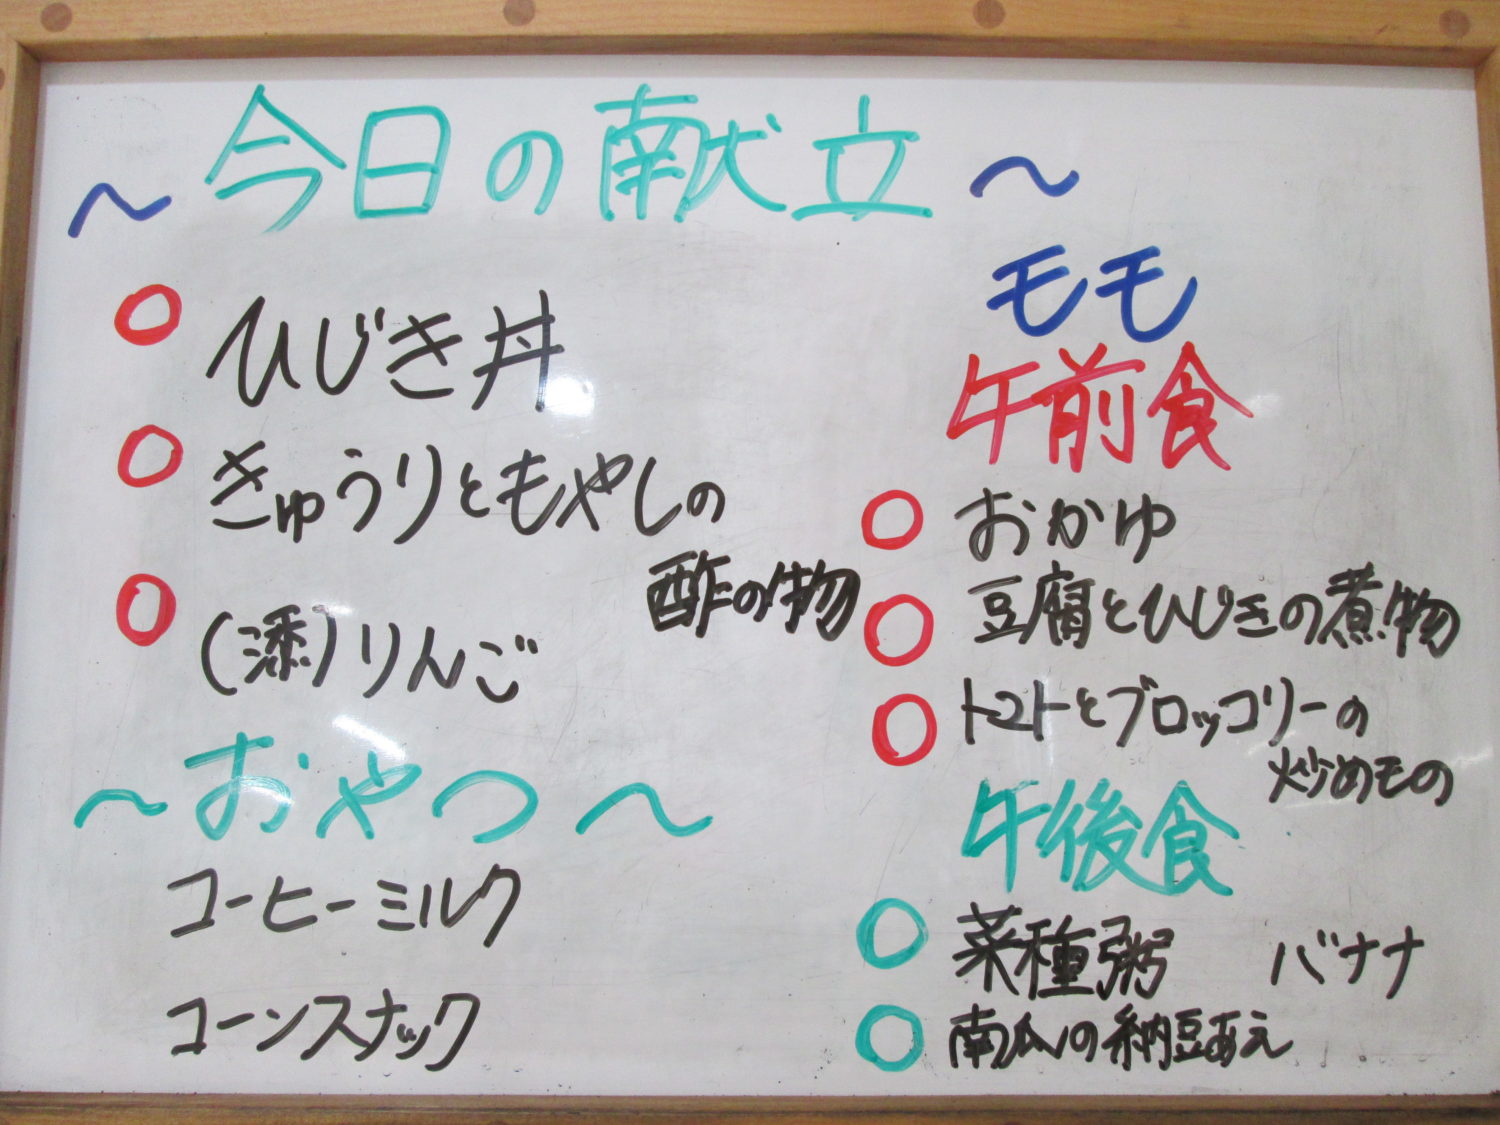 ~今日の献立~
ひじき丼
きゅうりともやしの
酢の物
(添)りんご
~おやつ~
コーヒーミルク
コーンスナック
モモ
午前食
おかゆ
豆腐とひじきの煮物
トマトとブロッコリーの
炒めもの
午後食
菜種粥 バナナ
南瓜の納豆あえ